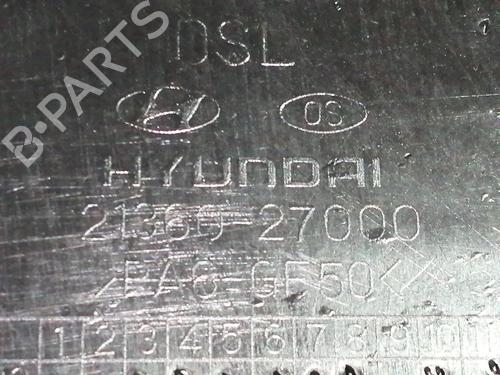 B·PARTS
DSL
OS
HYUNDAI
21360-27000
>PA6-GF50<
1 2 3 4 5 6 7 8 9 10